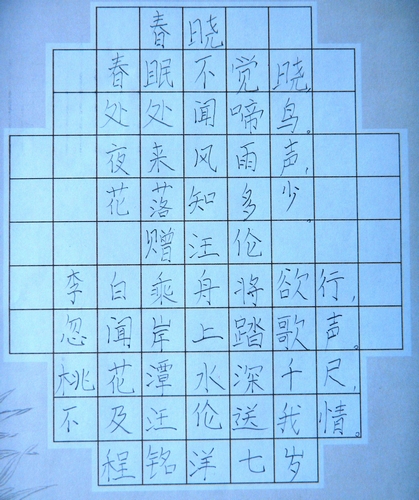 春晓
春眠不觉晓，
处处闻啼鸟。
夜来风雨声，
花落知多少。
赠汪伦
李白乘舟将欲行，
忽闻岸上踏歌声。
桃花潭水深千尺，
不及汪伦送我情。
程铭洋七岁